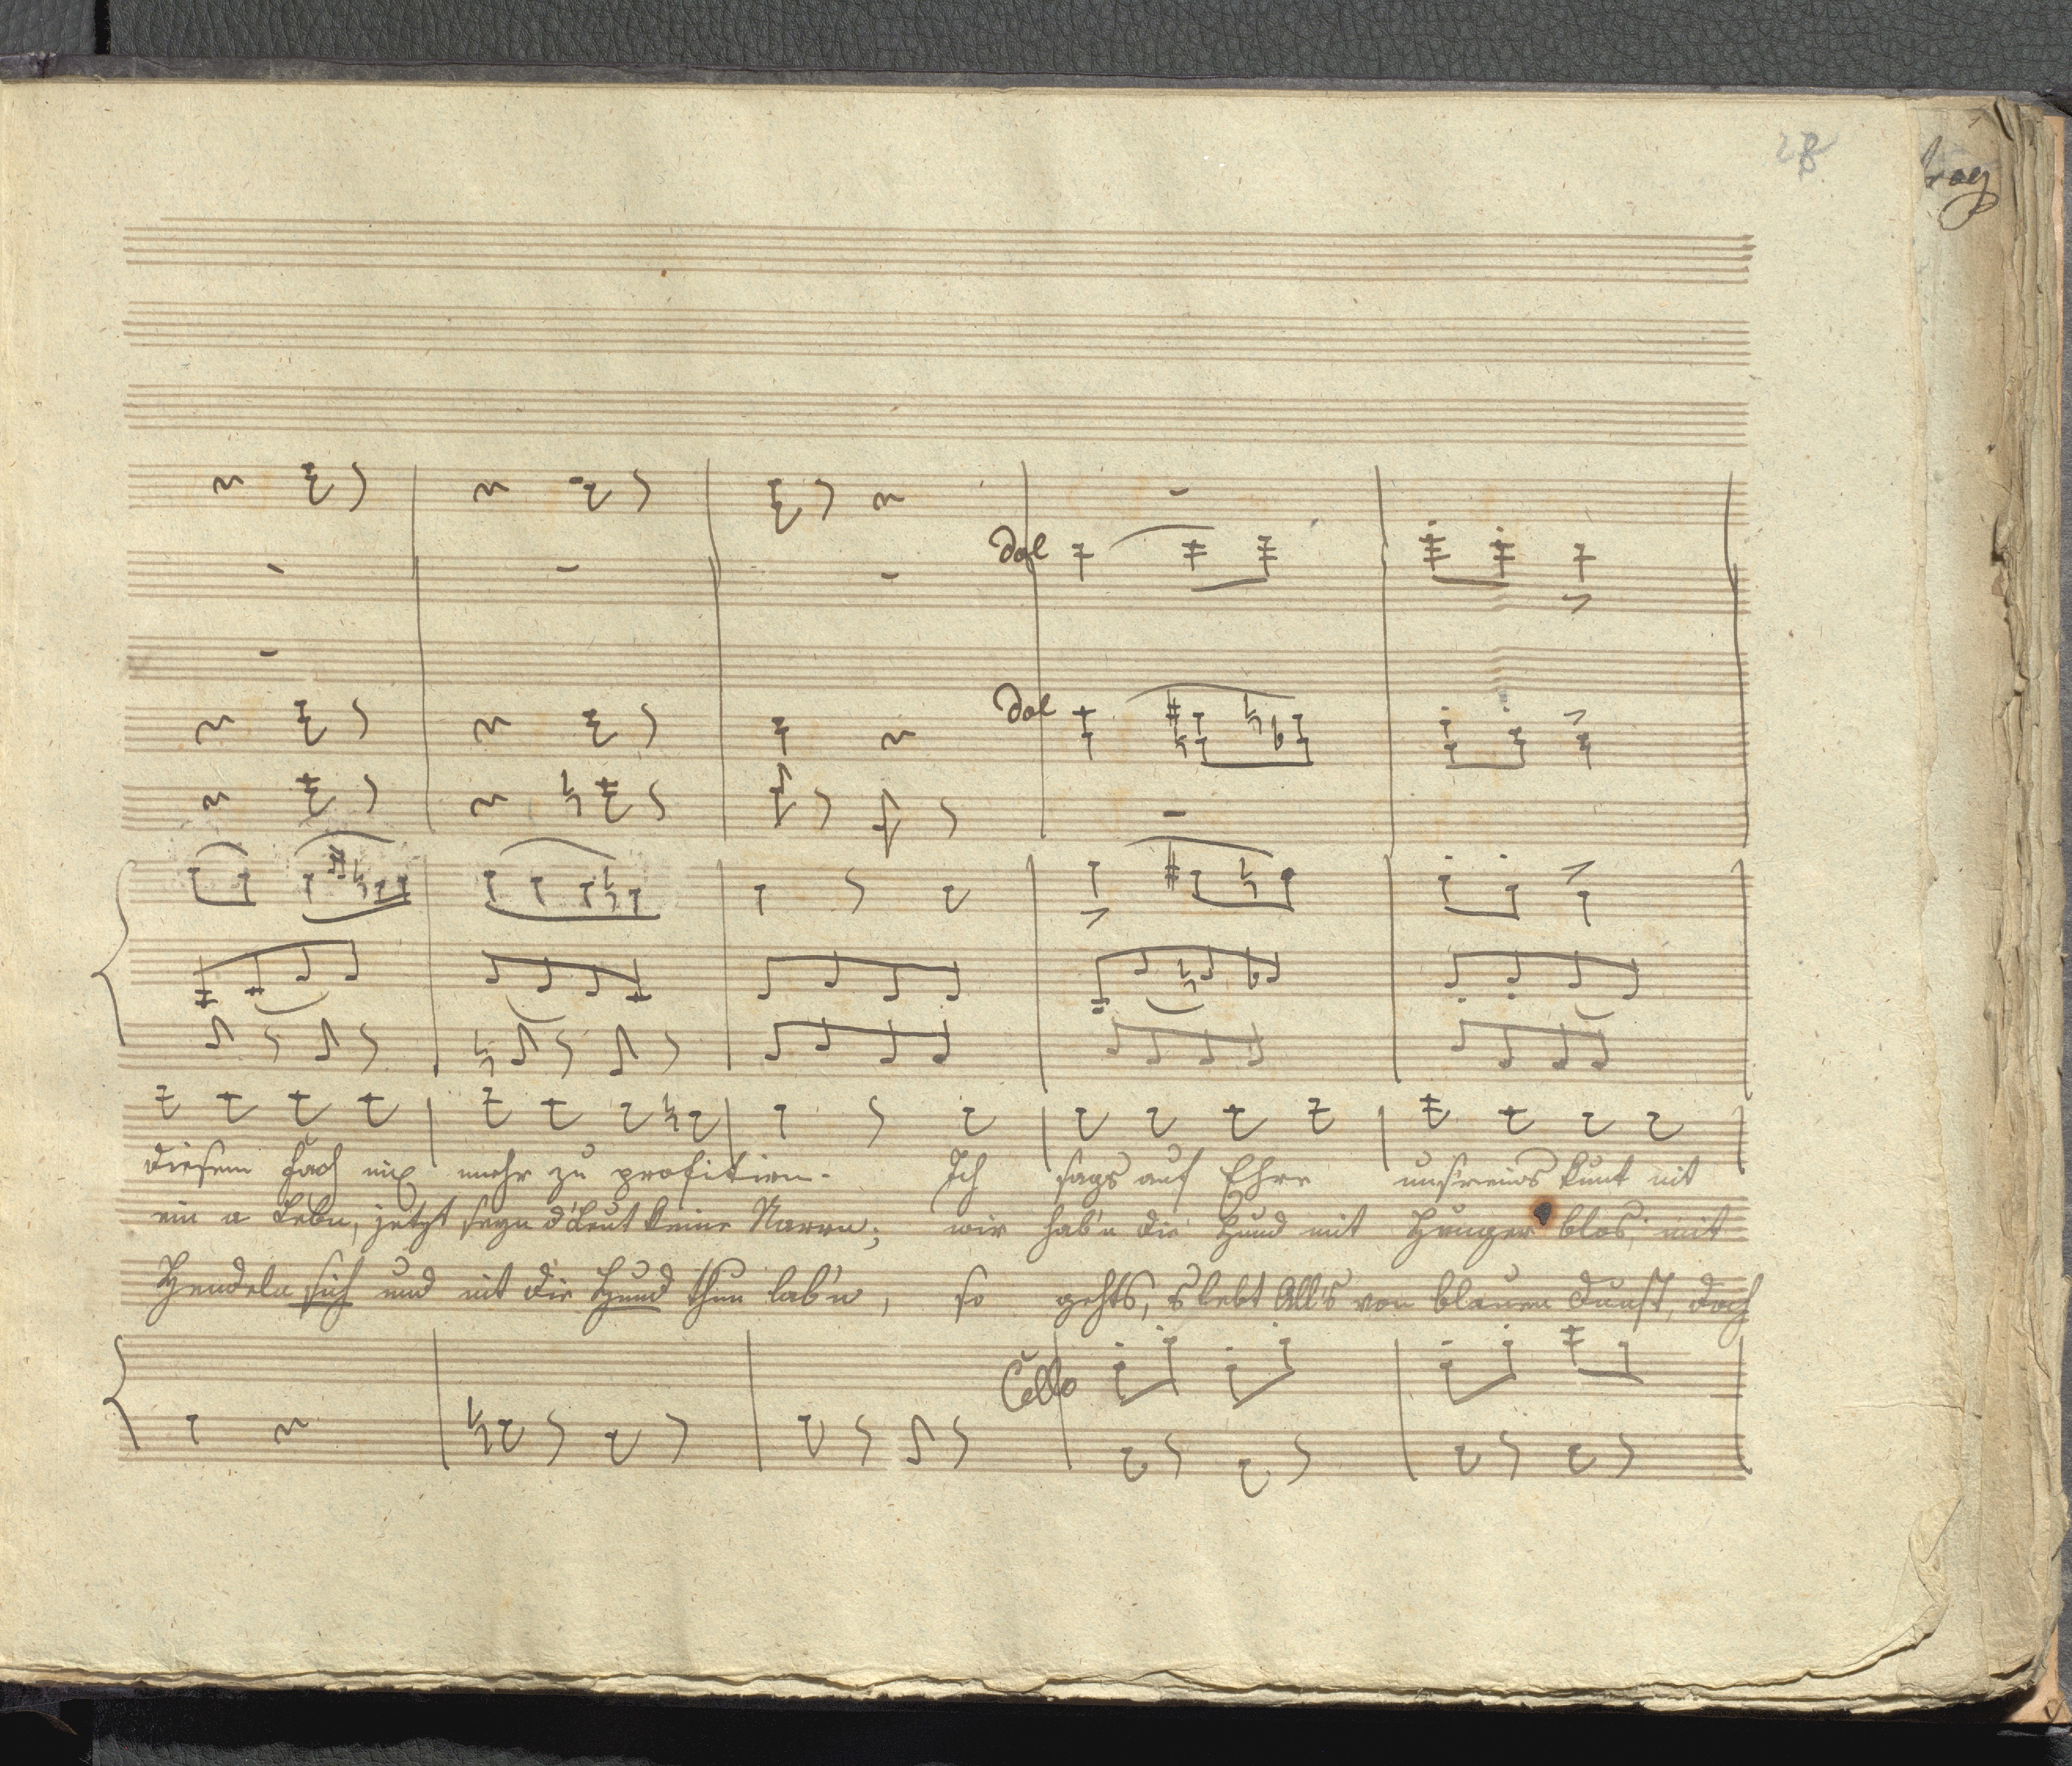 28
dol
dol
diesem Fach nix mehr zu profitiren. Ich sags auf Ehre unsreins kunt nit
ein a Leben, jetzt seyn d'Leut keine Narrn; wir hab'n die Hund mit Hunger blos, mit
Hendeln sich und nit die Hund thun lab'n, so gehts, s lebt All's von blauen Dunst, doch
Cello